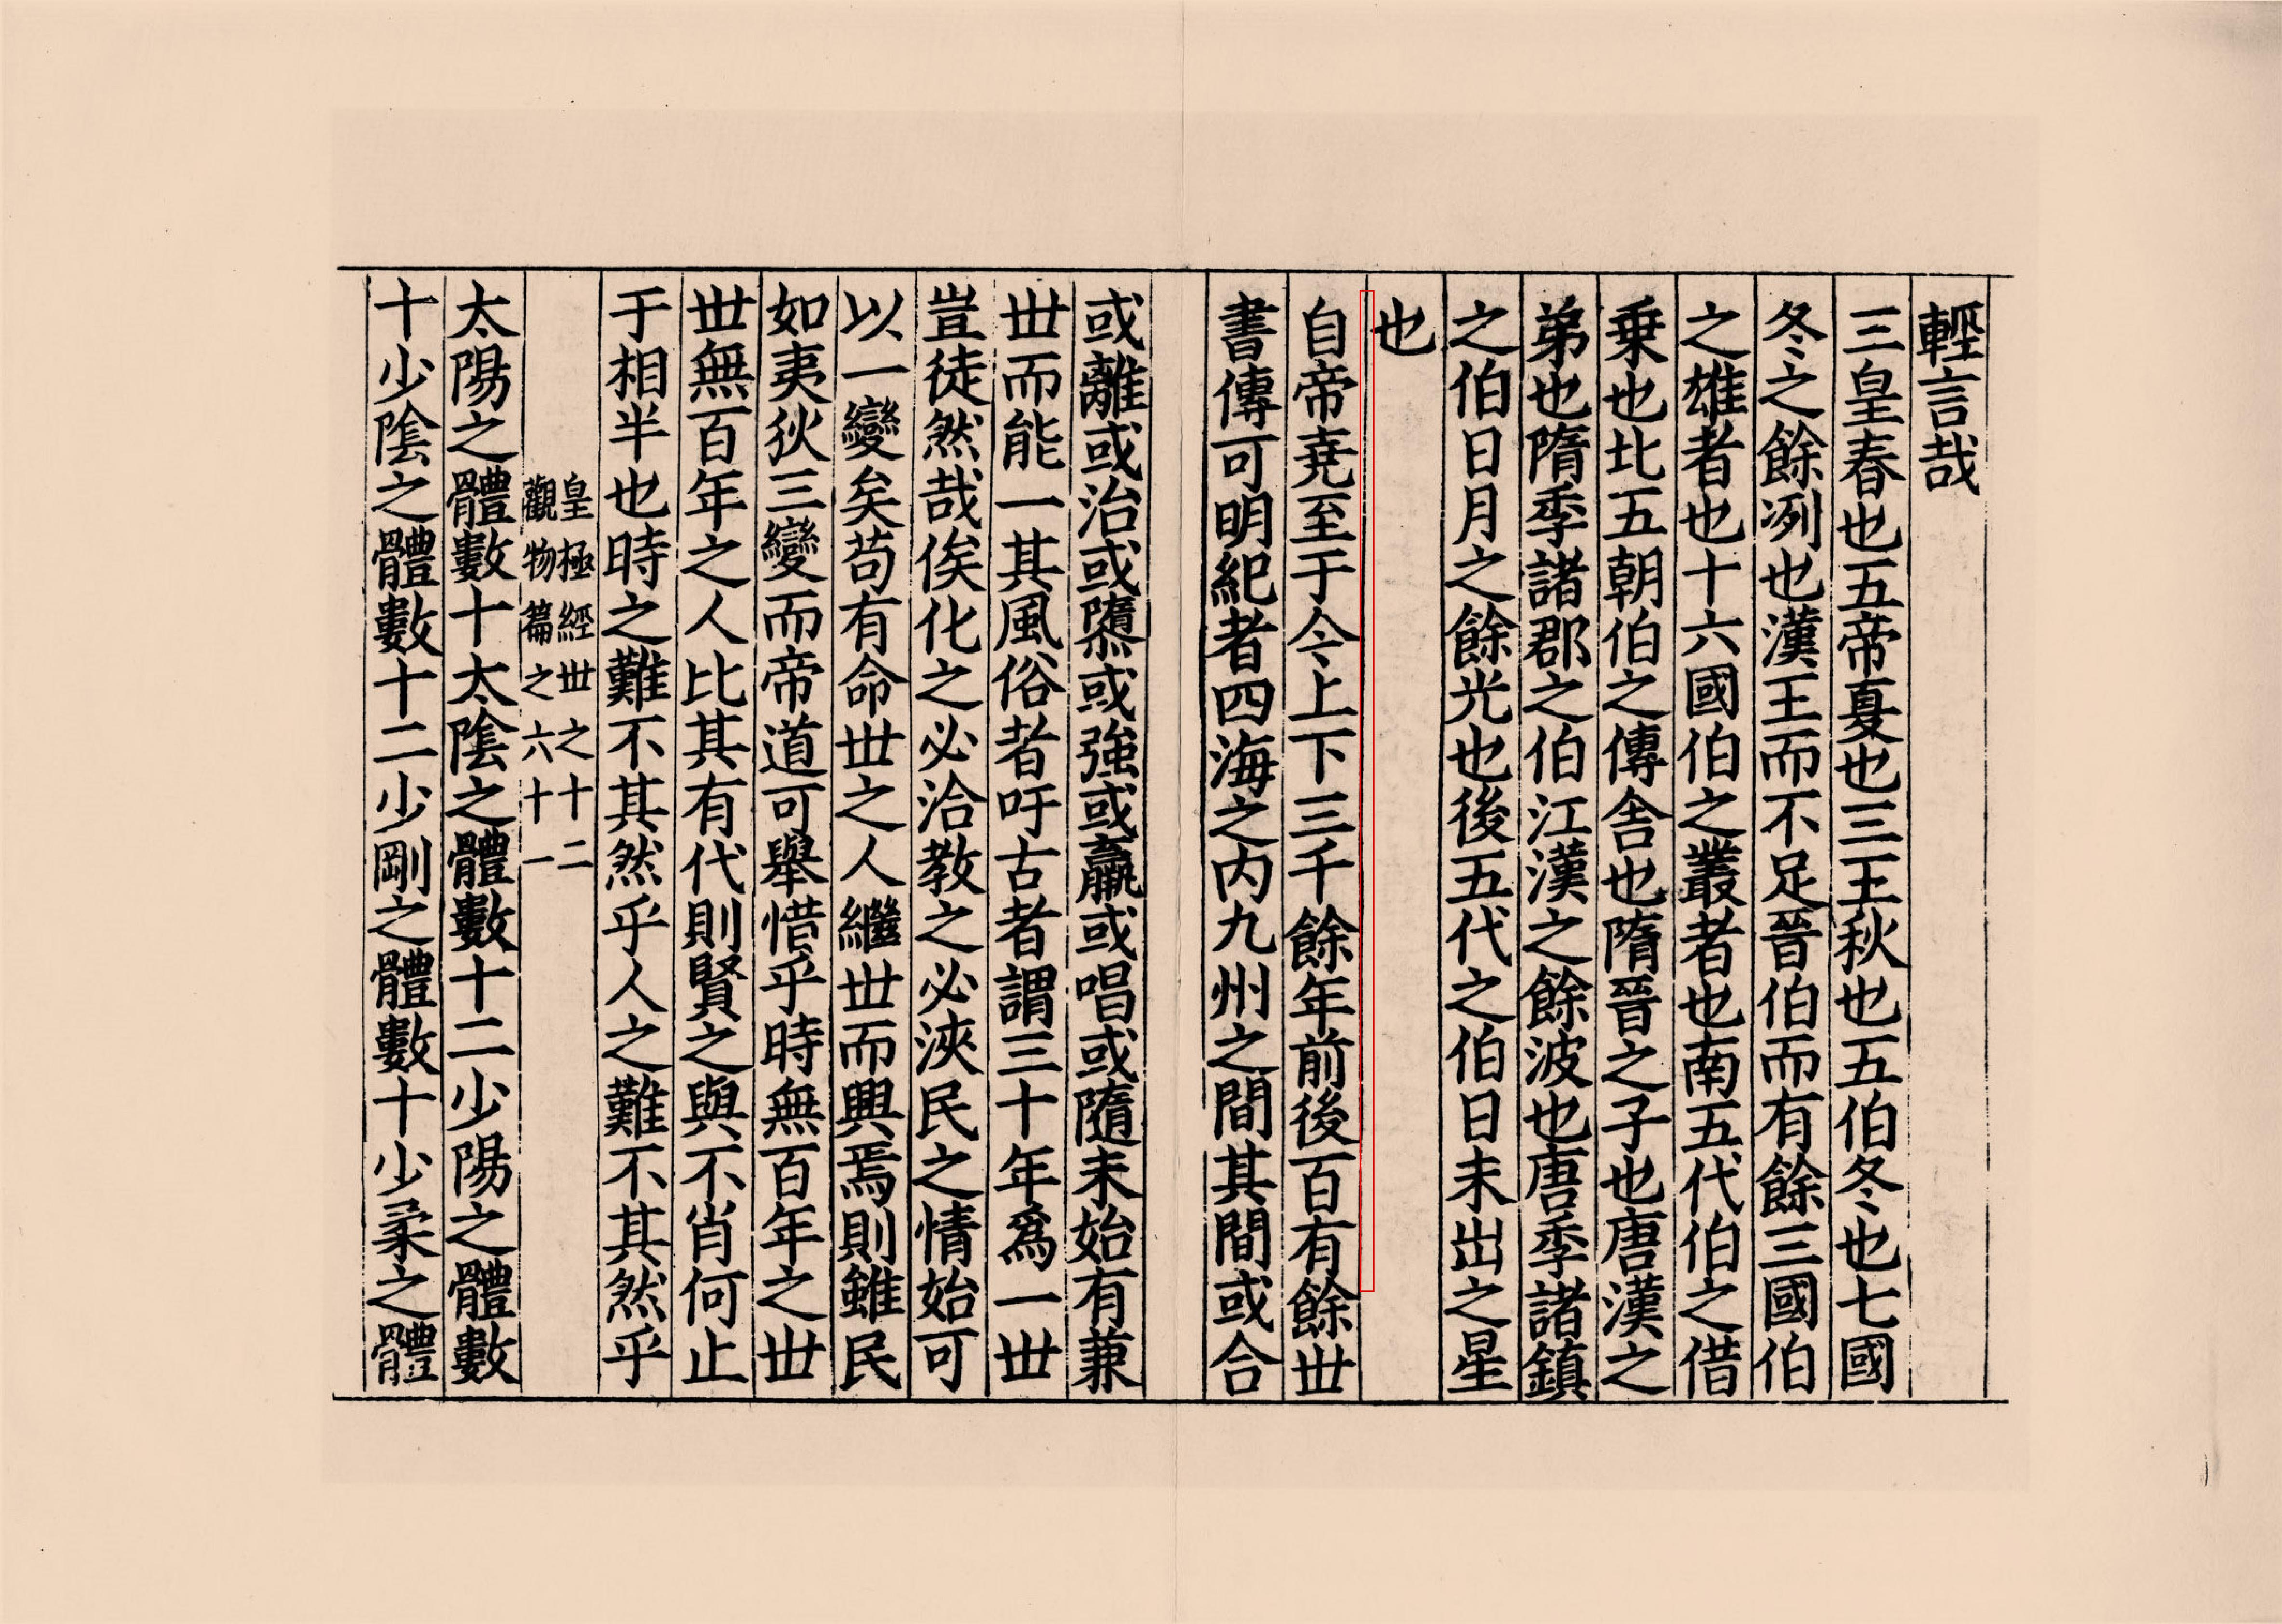 輕言哉
三皇春也五帝夏也三王秋也五伯冬也七國
冬之餘冽也漢王而不足晉伯而有餘三國伯
之雄者也十六國伯之叢者也南五代伯之借
乗也北五朝伯之傳舍也隋晉之子也唐漢之
弟也隋季諸郡之伯江漢之餘波也唐季諸鎮
之伯日月之餘光也後五代之伯日未出之星
也
自帝堯至于今上下三千餘年前後百有餘丗
書傳可明紀者四海之内九州之間其間或合
或離或治或隳或強或羸或唱或隨未始有兼
丗而能一其風俗者吁古者謂三十年爲一丗
豈徒然哉俟化之必洽教之必浹民之情始可
以一變矣苟有命丗之人繼丗而興焉則雖民
如夷狄三變而帝道可舉惜乎時無百年之丗
丗無百年之人比其有代則賢之與不肖何止
于相半也時之難不其然乎人之難不其然乎
皇極經丗之十二
觀物篇之六十一
太陽之體數十太隂之體數十二少陽之體數
十少隂之體數十二少剛之體數十少柔之體